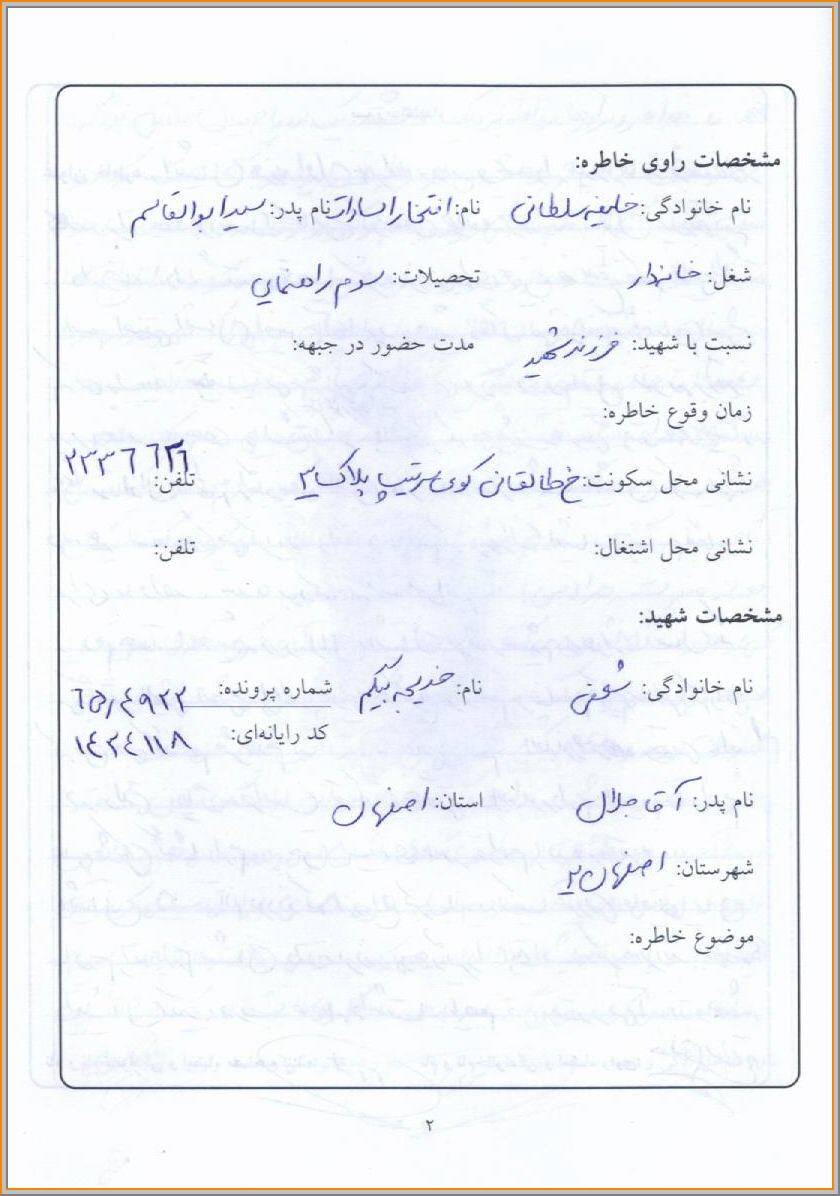 مشخصات راوی خاطره:
نام خانوادگی: خلیفه سلطانی نام: افتخار السادات نام پدر: سید ابوالقاسم
شغل: خانه‌دار تحصیلات: سوم راهنمایی
نسبت با شهید: فرزند شهید مدت حضور در جبهه:
زمان وقوع خاطره:
نشانی محل سکونت: خ طالقانی کوی سرتیپ پلاک ۳ تلفن:
نشانی محل اشتغال: تلفن:
مشخصات شهید:
نام خانوادگی: شفتی نام: خدیجه بیگم شماره پرونده: ۶۵/۴۹۲۲
کد رایانه‌ای: ۱۴۲۴۱۱۸
نام پدر: آقا جلال استان: اصفهان
شهرستان: اصفهان ۲
موضوع خاطره:
۲